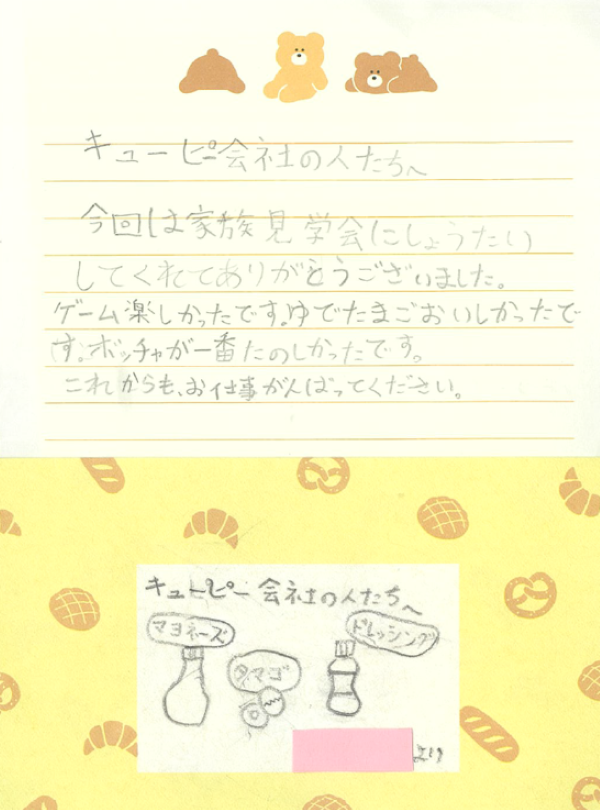 キューピー会社の人たちへ
今回は家族見学会にしょうたい
してくれてありがとうございました。
ゲーム楽しかったです。ゆでたまごおいしかったで
す。ボッチャが一番たのしかったです。
これからも、お仕事がんばってください。
キューピー会社の人たちへ
マヨネーズ
タマゴ
ドレッシング
より